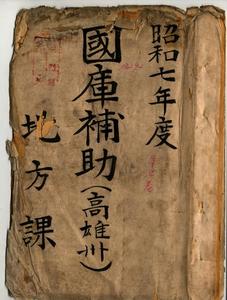 昭和七年度
國庫補助(高雄州)
地方課